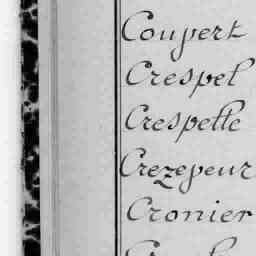 Coupert
Crespel
Crespelle
Crezepeur
Cronier